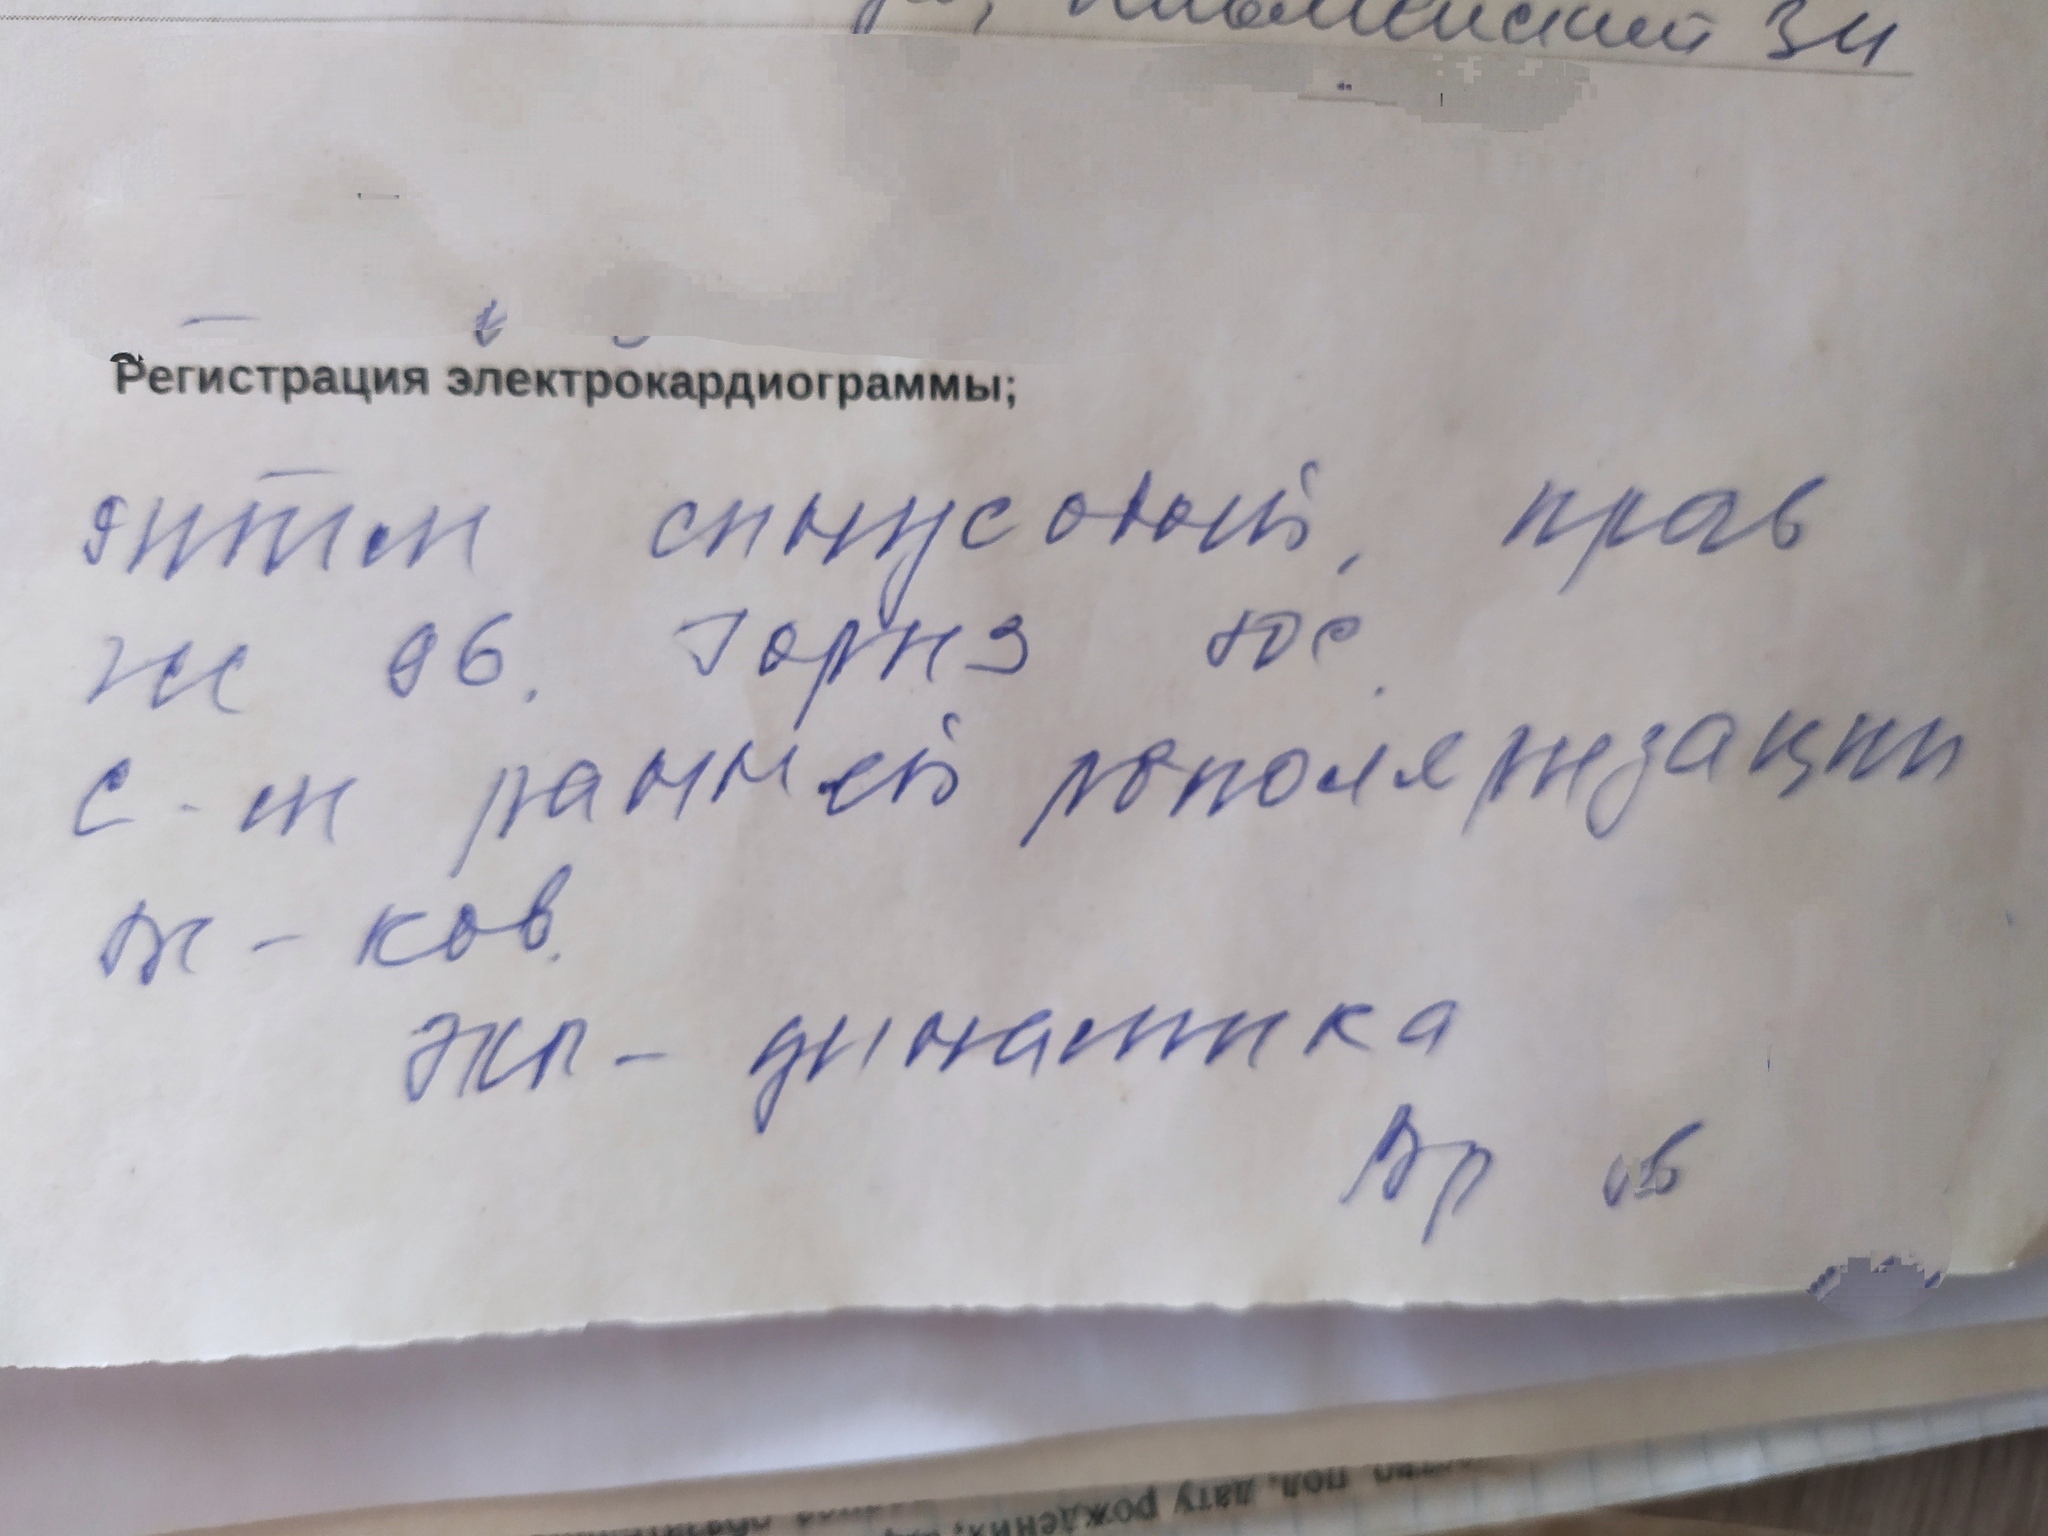 34
Регистрация электрокардиограммы;
Ритм синусовый, прав
чсс 96. Гориз ЭОС.
С-м ранней реполяризации
ж-ков.
ЭКГ- динамика
Вр
рождения, пол, дату